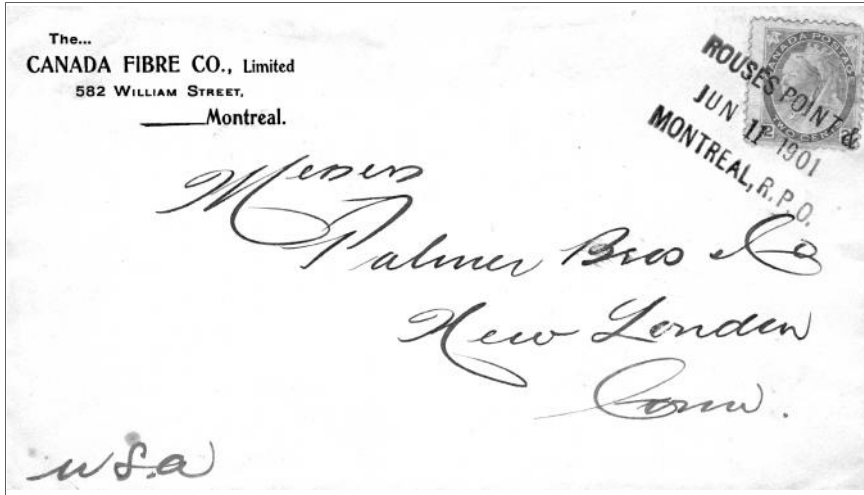 The...
CANADA FIBRE CO., Limited
582 WILLIAM STREET,
Montreal.
CANADA POSTAG
TWO CENT
2
ROUSES POINT &
JUN 11 1901
MONTREAL, R.P.O.
Messrs
Palmer Bros & Co
New London
Conn.
U.S.A